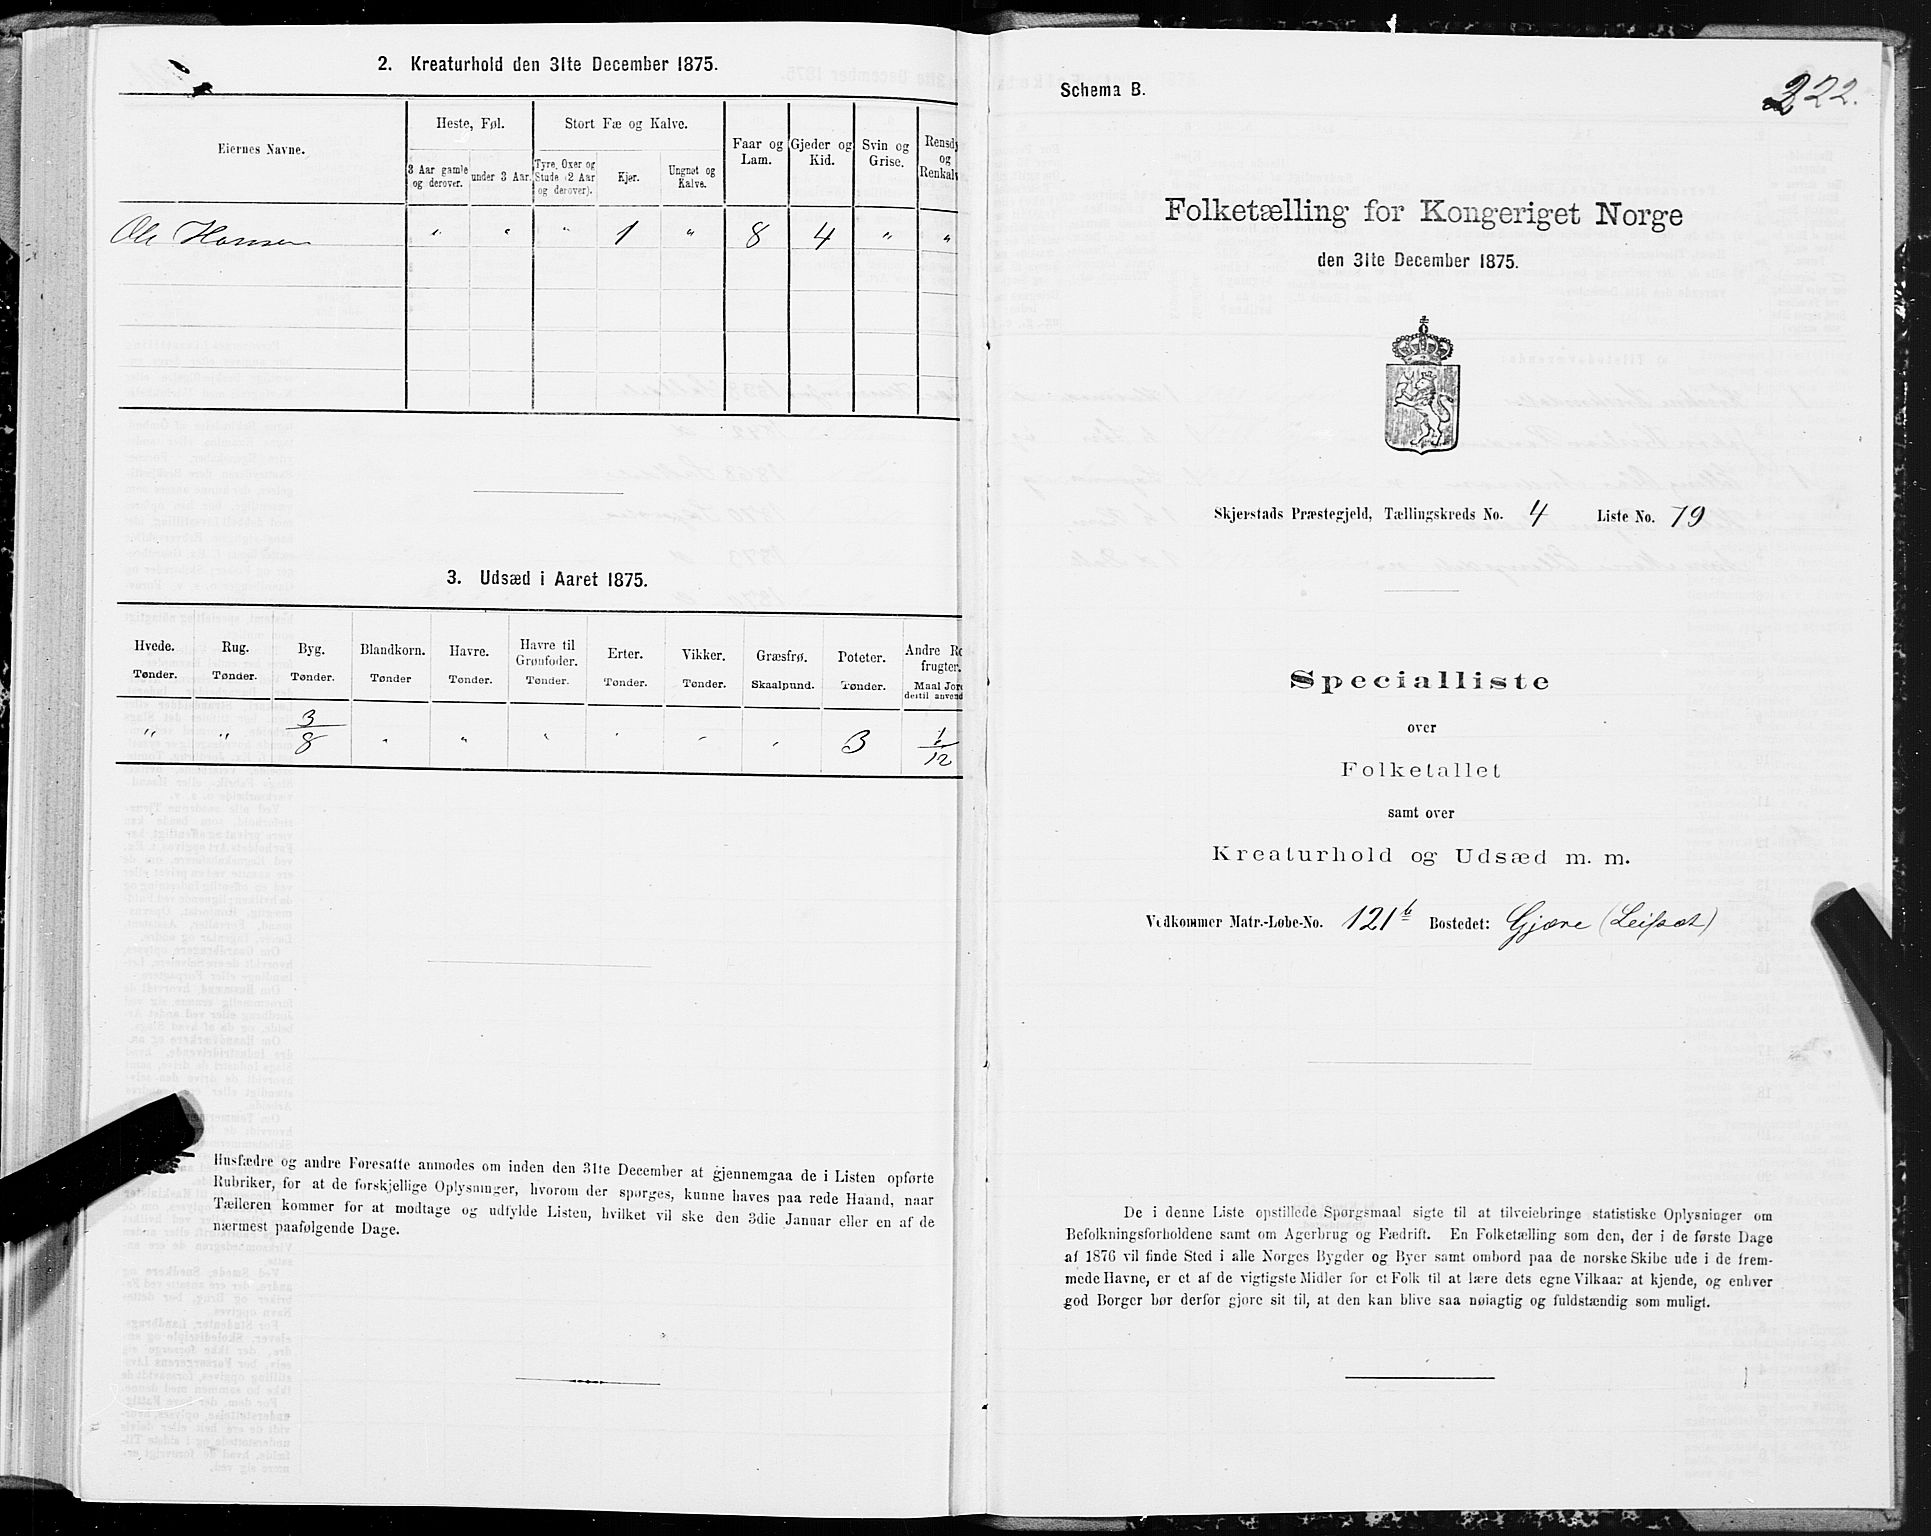 2. Kreaturhold den 31te December 1875.
Eiernes Navne.
Heste, Føl.
Stort Fæ og Kalve.
Faar og Lam.
Gjeder og Kid.
Svin og Grise.
Rensdy og Renkalv
3 Aar gamle og derover.
under 3 Aar.
Tyre, Oxer og Stude (2 Aar og derover).
Kjør.
Ungnøt og Kalve.
Ole Hansen " " " 1 " 8 4 " "
3. Udsæd i Aaret 1875.
Hvede. Rug. Byg. Blandkorn. Havre. Havre til Grønfoder. Erter. Vikker. Græsfrø. Poteter. Andre Ro frugter.
Tønder. Tønder. Tønder. Tønder Tønder. Tønder. Tønder. Tønder. Skaalpund. Tønder. Maal Jord dertil anvend
" " 3/8 " " " " " " 3 1/12
Husfædre og andre Foresatte anmodes om inden den 31te December at gjennemgaa de i Listen opførte
Rubriker, for at de forskjellige Oplysninger, hvorom der spørges, kunne haves paa rede Haand, naar
Tælleren kommer for at modtage og udfylde Listen, hvilket vil ske den 3die Januar eller en af de
nærmest paafølgende Dage.
Schema B.
222.
Folketælling for Kongeriget Norge
den 31te December 1875.
Skjerstads Præstegjeld, Tællingskreds No. 4 Liste No. 79
Specialliste
over
Folketallet
samt over
Kreaturhold og Udsæd m. m.
Vedkommer Matr.-Løbe-No. 121b Bostedet: Gjære (Leifset)
De i denne Liste opstillede Spørgsmaal sigte til at tilveiebringe statistiske Oplysninger om
Befolkningsforholdene samt om Agerbrug og Fædrift. En Folketælling som den, der i de første Dage
af 1876 vil finde Sted i alle Norges Bygder og Byer samt ombord paa de norske Skibe ude i de frem-
mede Havne, er et af de vigtigste Midler for et Folk til at lære dets egne Vilkaar at kjende, og enhver
god Borger bør derfor gjøre sit til, at den kan blive saa nøiagtig og fuldstændig som muligt.